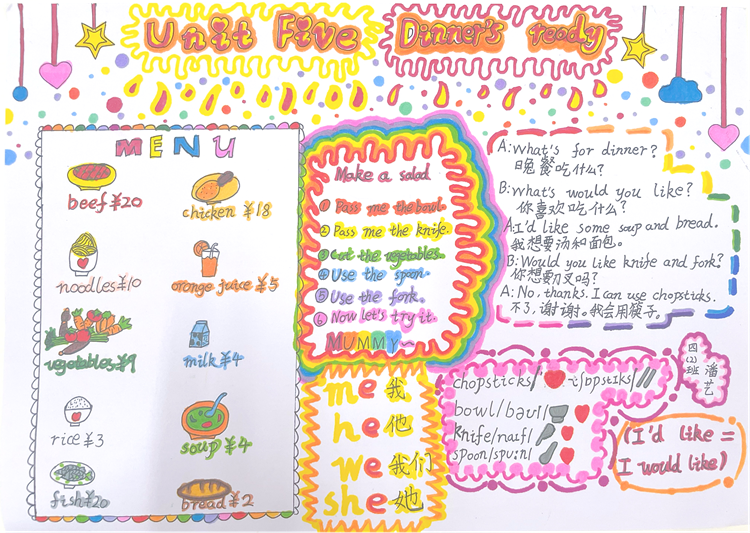 Unit Five
Dinner's ready
MENU
beef ¥20
chicken ¥18
noodles ¥10
orange juice ¥5
vegetables ¥9
milk ¥4
rice ¥3
soup ¥4
fish ¥20
bread ¥2
Make a salad
① Pass me the bowl.
② Pass me the knife.
③ Cut the vegetables.
④ Use the spoon.
⑤ Use the fork.
⑥ Now let's try it.
MUMMY~
me 我
he 他
we 我们
she 她
A: What's for dinner?
晚餐吃什么?
B: What's would you like?
你喜欢吃什么?
A: I'd like some soup and bread.
我想要汤和面包。
B: Would you like knife and fork?
你想要刀叉吗?
A: No, thanks. I can use chopsticks.
不了,谢谢。我会用筷子。
chopsticks
bowl
knife/naɪf/
spoon/spuːn/
四(2)班
潘艺
(I'd like =
I would like)